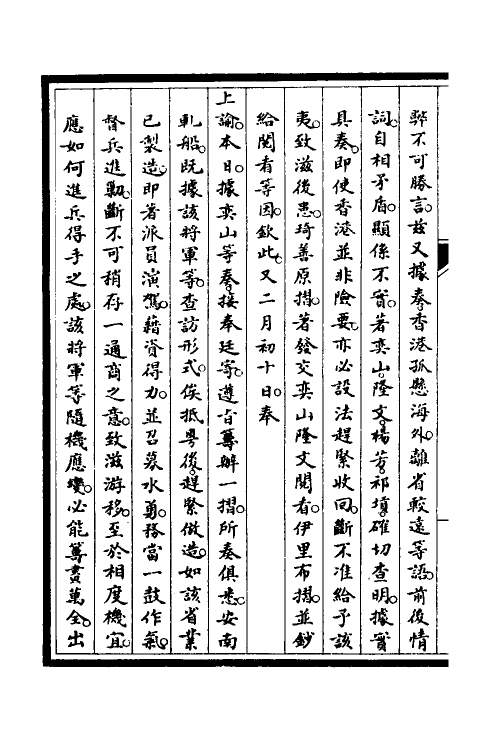 弊不可勝言茲又據奏香港孤懸海外離省較遠等語前後情
詞自相矛盾顯係不實著奕山隆文楊芳祁𡎴確切查明據實
具奏即使香港並非險要亦必設法趕緊收回斷不准給予該
夷致滋後患琦善原摺著發交奕山隆文閱看伊里布摺並鈔
給閱看等因欽此又二月初十日奉
上諭本日據奕山等奏接奉廷寄遵旨籌辦一摺所奏俱悉安南
軋船既據該將軍等查訪形式俟抵粵後趕緊倣造如該省業
已製造即著派員演駕藉資得力並召募水勇務當一鼓作氣
督兵進勦斷不可稍存一通商之意致滋游移至於相度機宜
應如何進兵得手之處該將軍等隨機應變必能籌畫萬全出